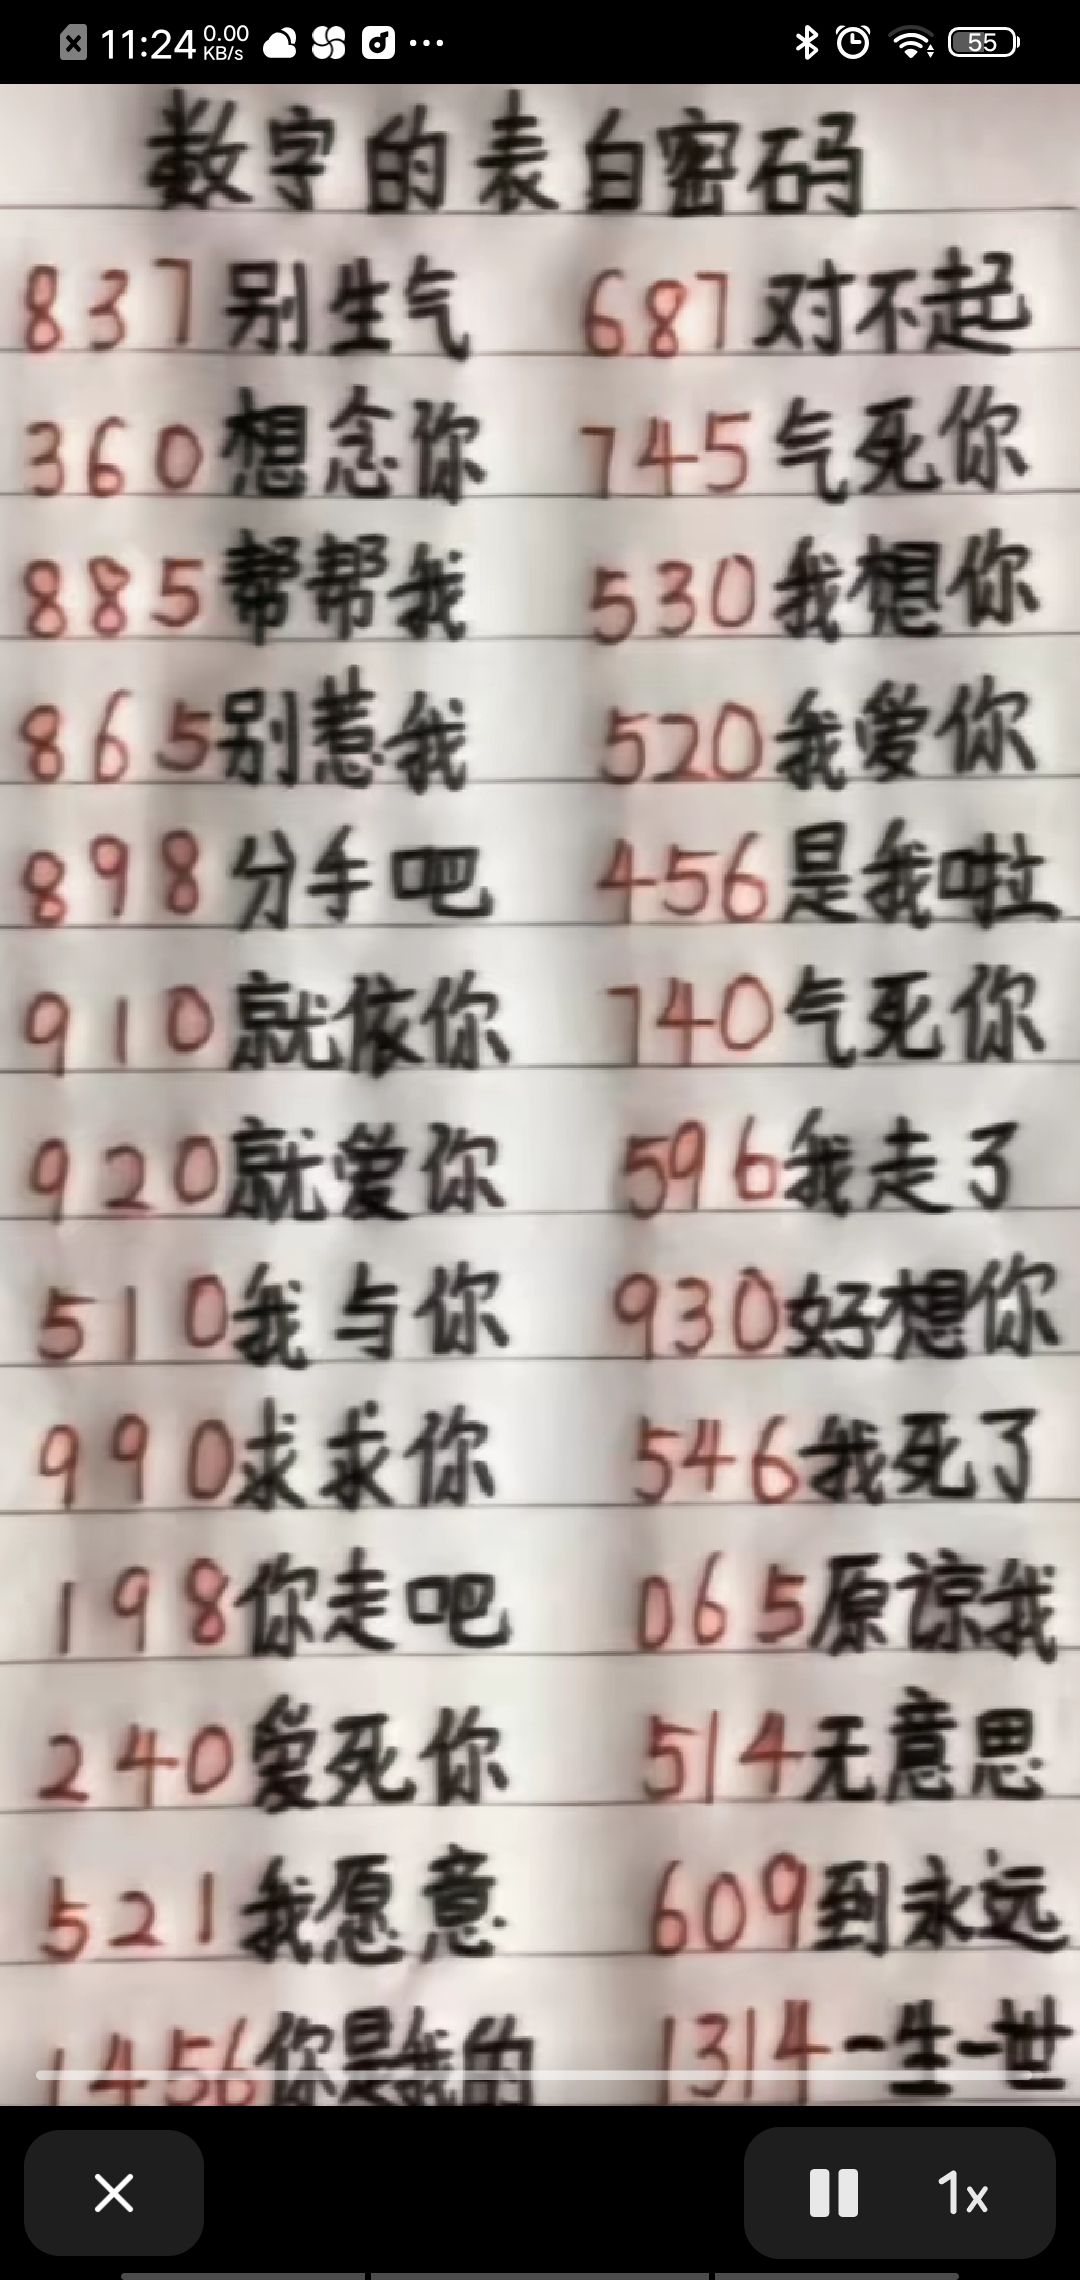 11:24 0.00 KB/s 55
数字的表白密码
837别生气 687对不起
360想念你 745气死你
885帮帮我 530我想你
865别惹我 520我爱你
898分手吧 456是我啦
910就依你 740气死你
920就爱你 596我走了
510我与你 930好想你
990求求你 546我死了
198你走吧 065原谅我
240爱死你 514无意思
521我愿意 609到永远
1456你是我的 1314一生一世
1x